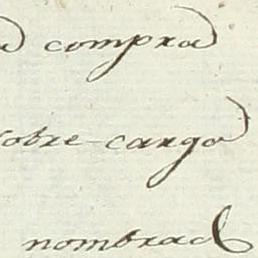 a compra
sobre-cargo
nombrad